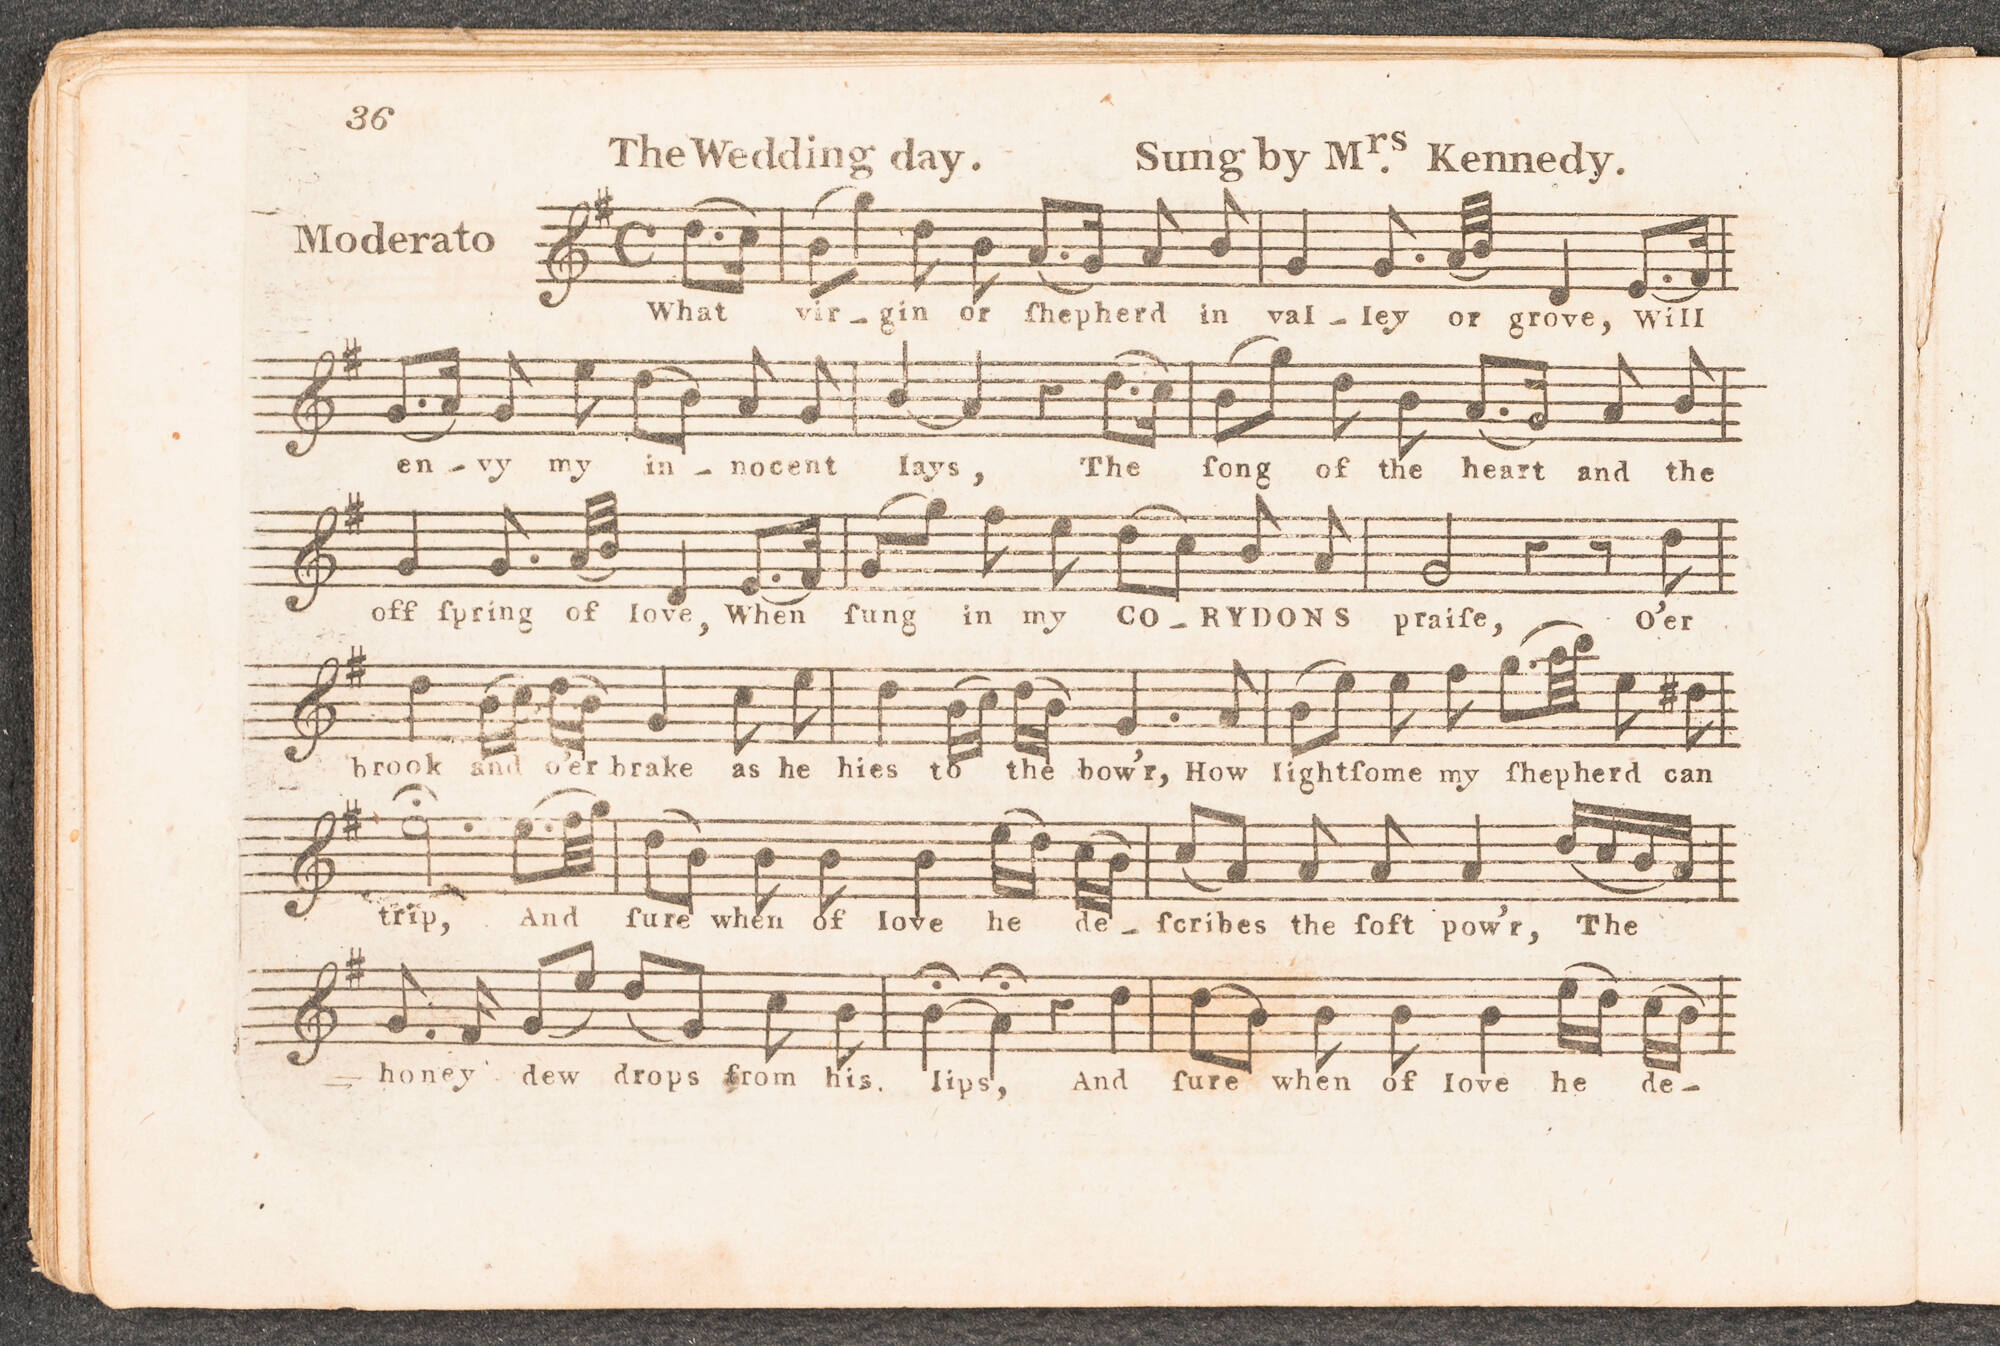 36
The Wedding day. Sung by Mr.s Kennedy.
Moderato
What vir-gin or ſhepherd in val-ley or grove, Will
en-vy my in-nocent lays, The ſong of the heart and the
off ſpring of love, When ſung in my CO-RYDONS praiſe, O'er
brook and o'er brake as he hies to the bow'r, How lightſome my ſhepherd can
trip, And ſure when of love he de-ſcribes the ſoft pow'r, The
honey dew drops from his. lips, And ſure when of love he de-